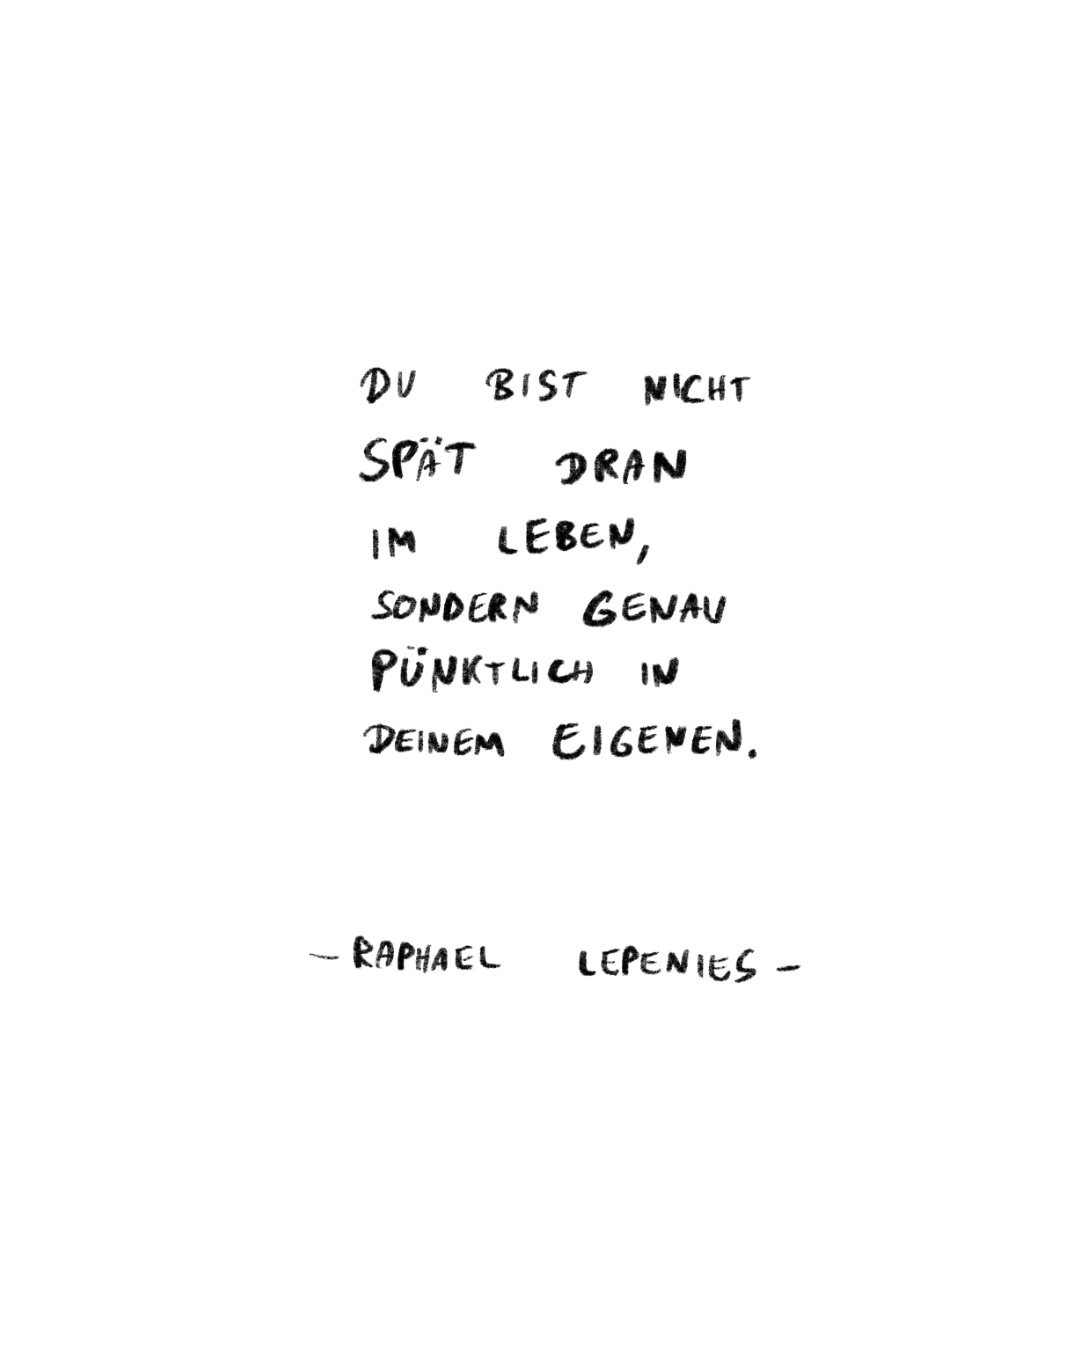 DU BIST NICHT
SPÄT DRAN
IM LEBEN,
SONDERN GENAU
PÜNKTLICH IN
DEINEM EIGENEN.
— RAPHAEL LEPENIES —